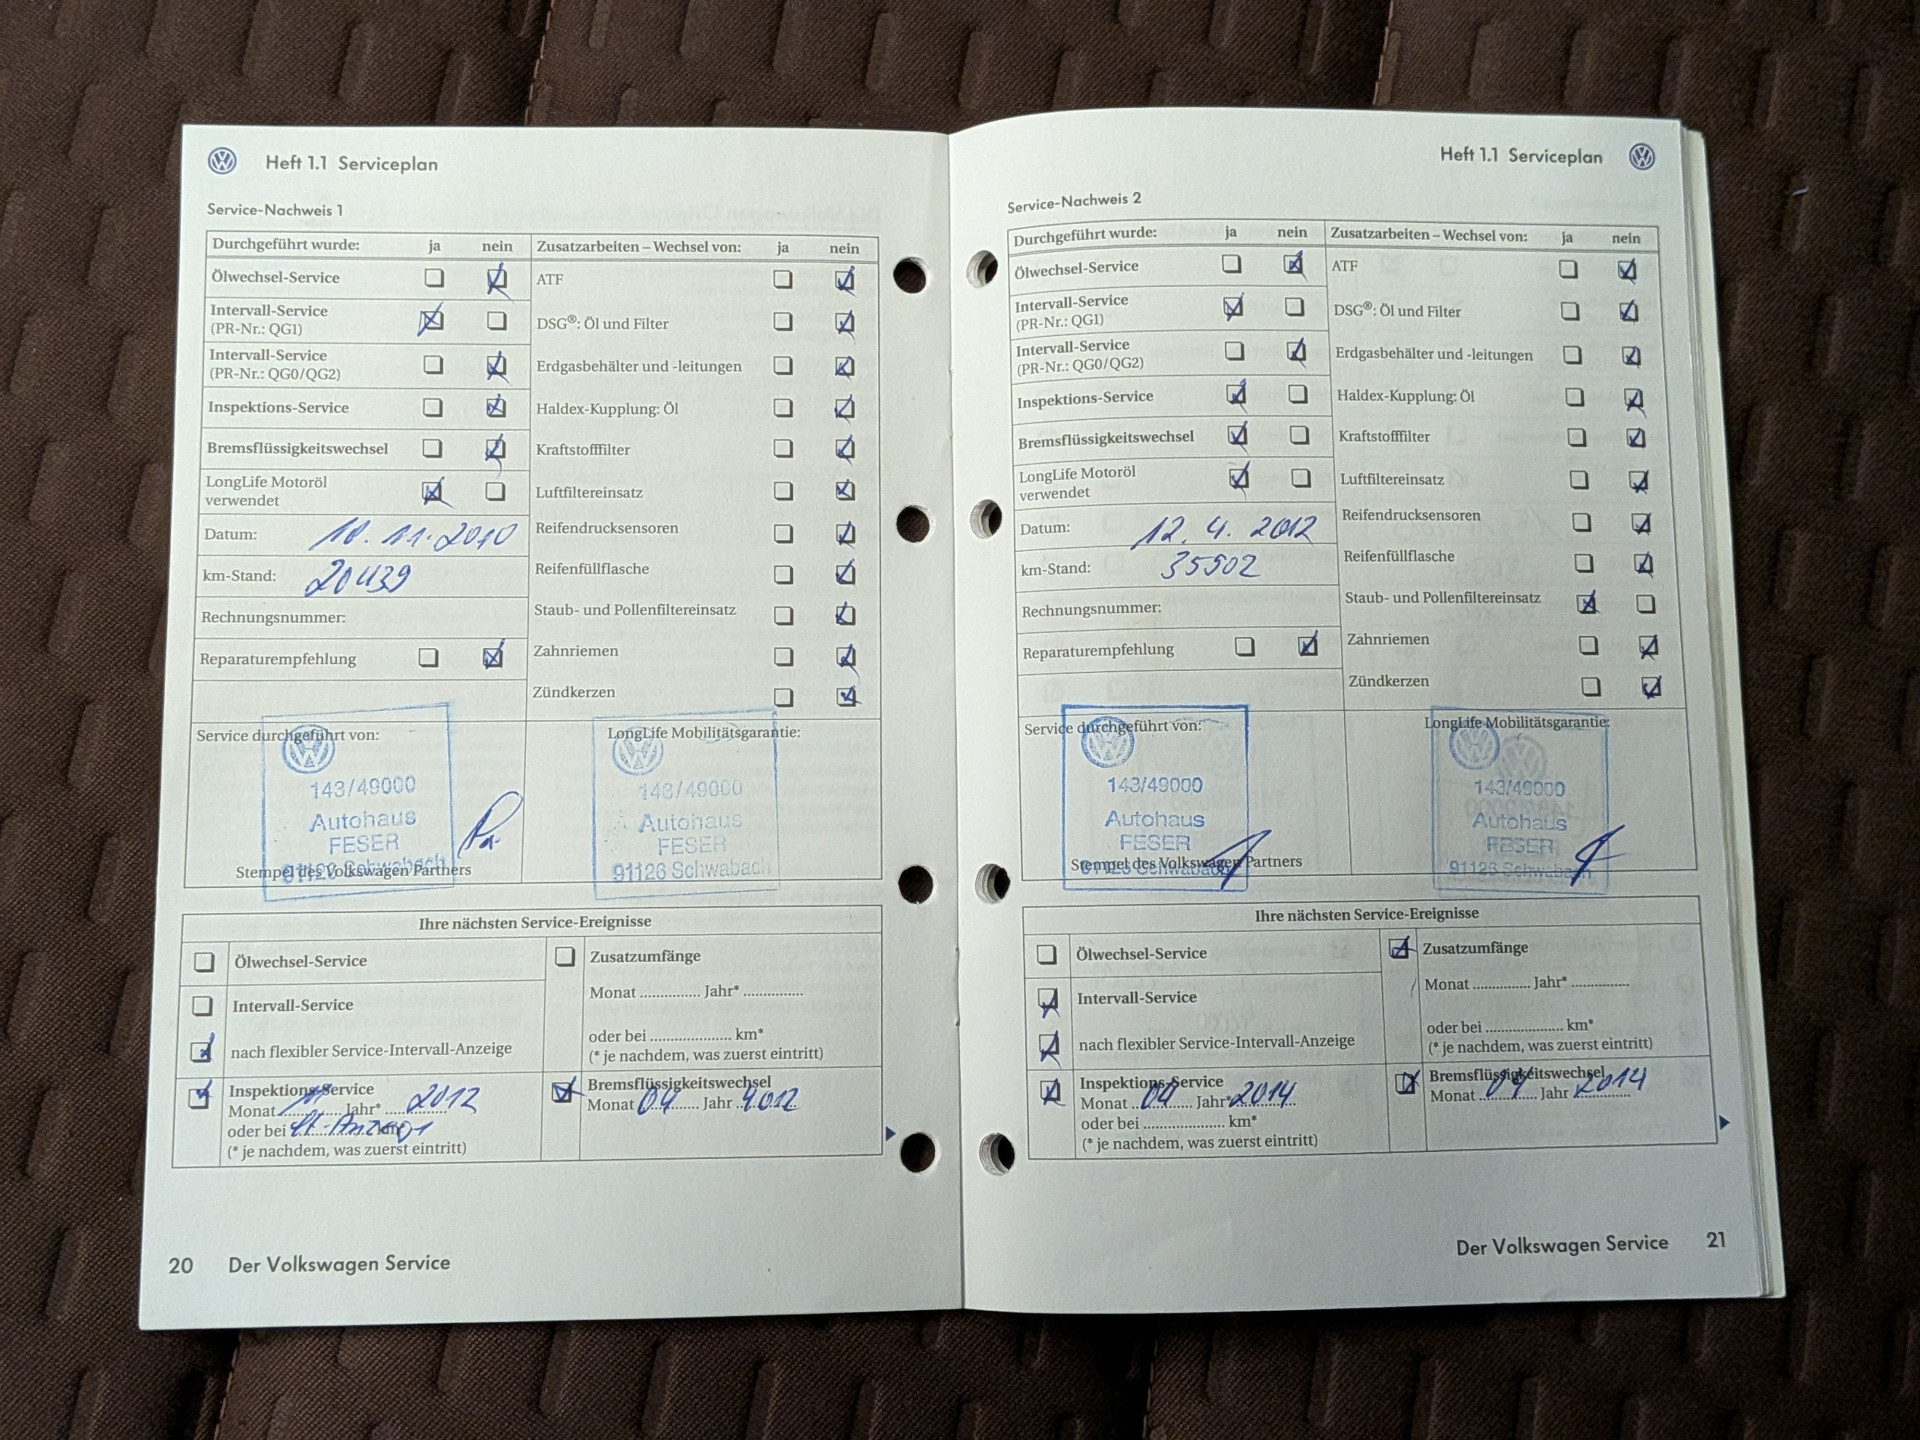 Heft 1.1 Serviceplan
Service-Nachweis 1
Durchgeführt wurde: ja nein
Ölwechsel-Service
Intervall-Service
(PR-Nr.: QG1)
Intervall-Service
(PR-Nr.: QG0/QG2)
Inspektions-Service
Bremsflüssigkeitswechsel
LongLife Motoröl
verwendet
Datum: 10.11.2010
km-Stand: 20439
Rechnungsnummer:
Reparaturempfehlung
Zusatzarbeiten – Wechsel von: ja nein
ATF
DSG®: Öl und Filter
Erdgasbehälter und -leitungen
Haldex-Kupplung: Öl
Kraftstofffilter
Luftfiltereinsatz
Reifendrucksensoren
Reifenfüllflasche
Staub- und Pollenfiltereinsatz
Zahnriemen
Zündkerzen
Service durchgeführt von:
143/49000
Autohaus
FESER
91126 Schwabach
Stempel des Volkswagen Partners
LongLife Mobilitätsgarantie:
143/49000
Autohaus
FESER
91126 Schwabach
Ihre nächsten Service-Ereignisse
Ölwechsel-Service
Intervall-Service
nach flexibler Service-Intervall-Anzeige
Inspektions-Service
Monat Jahr* 2012
oder bei km*
(* je nachdem, was zuerst eintritt)
Zusatzumfänge
Monat ............... Jahr* ...............
oder bei .................... km*
(* je nachdem, was zuerst eintritt)
Bremsflüssigkeitswechsel
Monat 04 Jahr 2012
20 Der Volkswagen Service
Heft 1.1 Serviceplan
Service-Nachweis 2
Durchgeführt wurde: ja nein
Ölwechsel-Service
Intervall-Service
(PR-Nr.: QG1)
Intervall-Service
(PR-Nr.: QG0/QG2)
Inspektions-Service
Bremsflüssigkeitswechsel
LongLife Motoröl
verwendet
Datum: 12. 4. 2012
km-Stand: 35502
Rechnungsnummer:
Reparaturempfehlung
Zusatzarbeiten – Wechsel von: ja nein
ATF
DSG®: Öl und Filter
Erdgasbehälter und -leitungen
Haldex-Kupplung: Öl
Kraftstofffilter
Luftfiltereinsatz
Reifendrucksensoren
Reifenfüllflasche
Staub- und Pollenfiltereinsatz
Zahnriemen
Zündkerzen
Service durchgeführt von:
143/49000
Autohaus
FESER
91126 Schwabach
Stempel des Volkswagen Partners
LongLife Mobilitätsgarantie:
143/49000
Autohaus
FESER
91126 Schwabach
Ihre nächsten Service-Ereignisse
Ölwechsel-Service
Intervall-Service
nach flexibler Service-Intervall-Anzeige
Inspektions-Service
Monat 04 Jahr* 2014
oder bei .................... km*
(* je nachdem, was zuerst eintritt)
Zusatzumfänge
Monat ............... Jahr* ...............
oder bei .................... km*
(* je nachdem, was zuerst eintritt)
Bremsflüssigkeitswechsel
Monat 04 Jahr 2014
Der Volkswagen Service 21